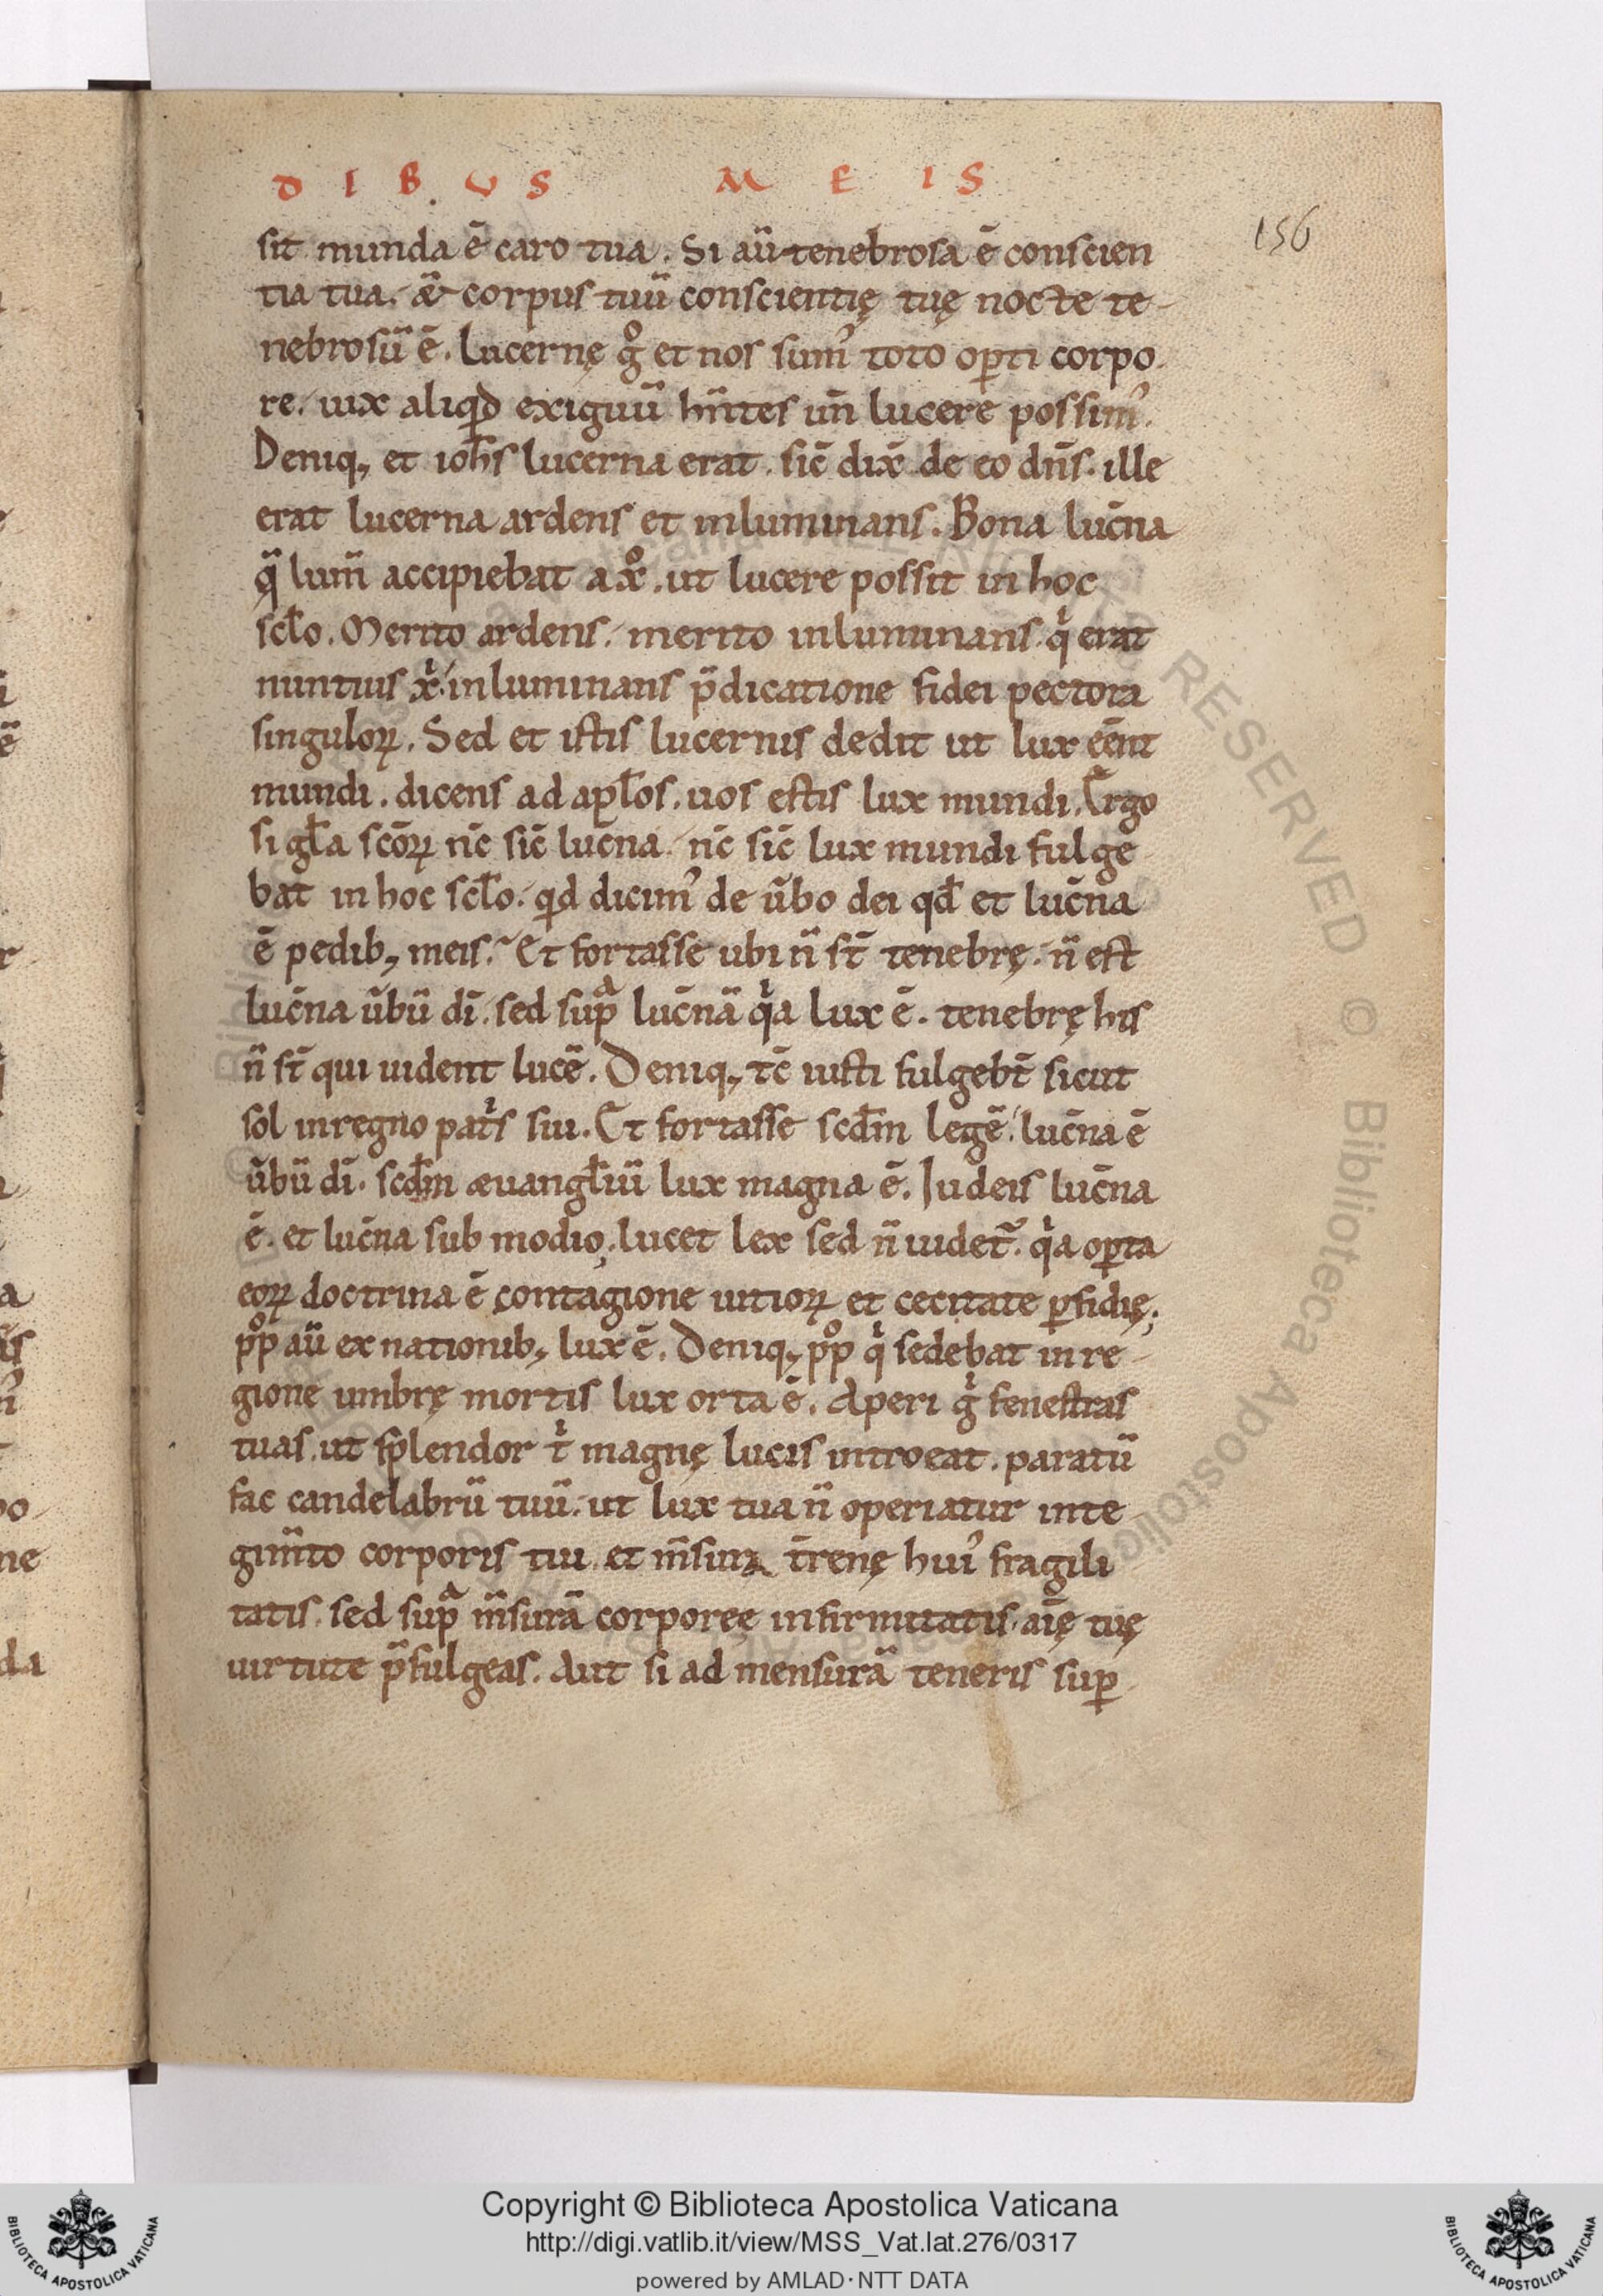 DIBVS MEIS
156
sit munda ē caro tua. Si aū tenebrosa ē conscien
tia tua. & corpus tuū conscientię tuę nocte te-
nebrosū ē. Lucernę gͦ et nos sumꝰ toto oꝑti corpo-
re. uix aliqͥd exiguū hn̄tes un̄ lucere possimꝰ.
Deniq; et ioħs lucerna erat. sic̄ dix̄ de eo dn̄s. ille
erat lucerna ardens et inluminans. Bona luc̄na
q̄ lum̄ accipiebat a xͦ. ut lucere possit in hoc
scło. Merito ardens. merito inluminans. qͥ erat
nuntius xͥ. inluminans p̄dicatione fidei pectora
singuloꝝ. Sed et istis lucernis dedit ut lux eēnt
mundi. dicens ad apłos. uos estis lux mundi. Ergo
si gła sc̄oꝝ nc̄ sic̄ luc̄na. nc̄ sic̄ lux mundi fulge-
bat in hoc scło. qͥd dicimꝰ de ūbo dei qđ et luc̄na
ē pedib; meis. Et fortasse ubi n̄ st̄ tenebrę. n̄ est
luc̄na ūbū dī. sed supͣ luc̄nā qͥa lux ē. tenebrę his
n̄ st̄ qui uident lucē. Deniq; tc̄ iusti fulgebt̄ sicut
sol in regno patͥs sui. Et fortasse scđm legē. luc̄na ē
ūbū dī. scđm æuangłiū lux magna ē. Iudeis luc̄na
ē. et luc̄na sub modio. lucet lex sed n̄ uidet᷑. qͥa oꝑta
eoꝝ doctrina ē contagione uitioꝝ et cecitate ꝑfidię;
pͦp aū ex nationib; lux ē. Deniq; pͦp qͥ sedebat in re-
gione umbrę mortis lux orta ē. Aperi gͥ fenestras
tuas. ut splendor tͥ magnę lucis introeat. paratū
fac candelabrū tuū. ut lux tua n̄ operiatur inte-
gum̄to corporis tui et m̄sura t̄renę huiꝰ fragili
tatis. sed supͣ m̄surā corporeę infirmitatis. aīę tuę
uirtute p̄fulgeas. Aut si ad mensurā teneris suꝑ
Copyright © Biblioteca Apostolica Vaticana
http://digi.vatlib.it/view/MSS_Vat.lat.276/0317
powered by AMLAD·NTT DATA
BIBLIOTECA APOSTOLICA VATICANA
BIBLIOTECA APOSTOLICA VATICANA